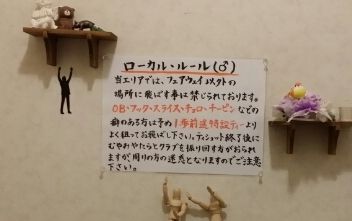 ローカル・ルール(♂)
当エリアでは、フェアウェイコメクトの
場所に飛ばす事は禁じられております。
OB・フック・スライス・チョロ・テーピンなどの
癖のある方は予め1歩前進特設ティーより
よく狙ってお飛ばし下さい。ティショット終了後に
むやみやたらとクラブを振り回す方がおられ
ますが、周りの方の迷惑となりますのでご注意
下さい。